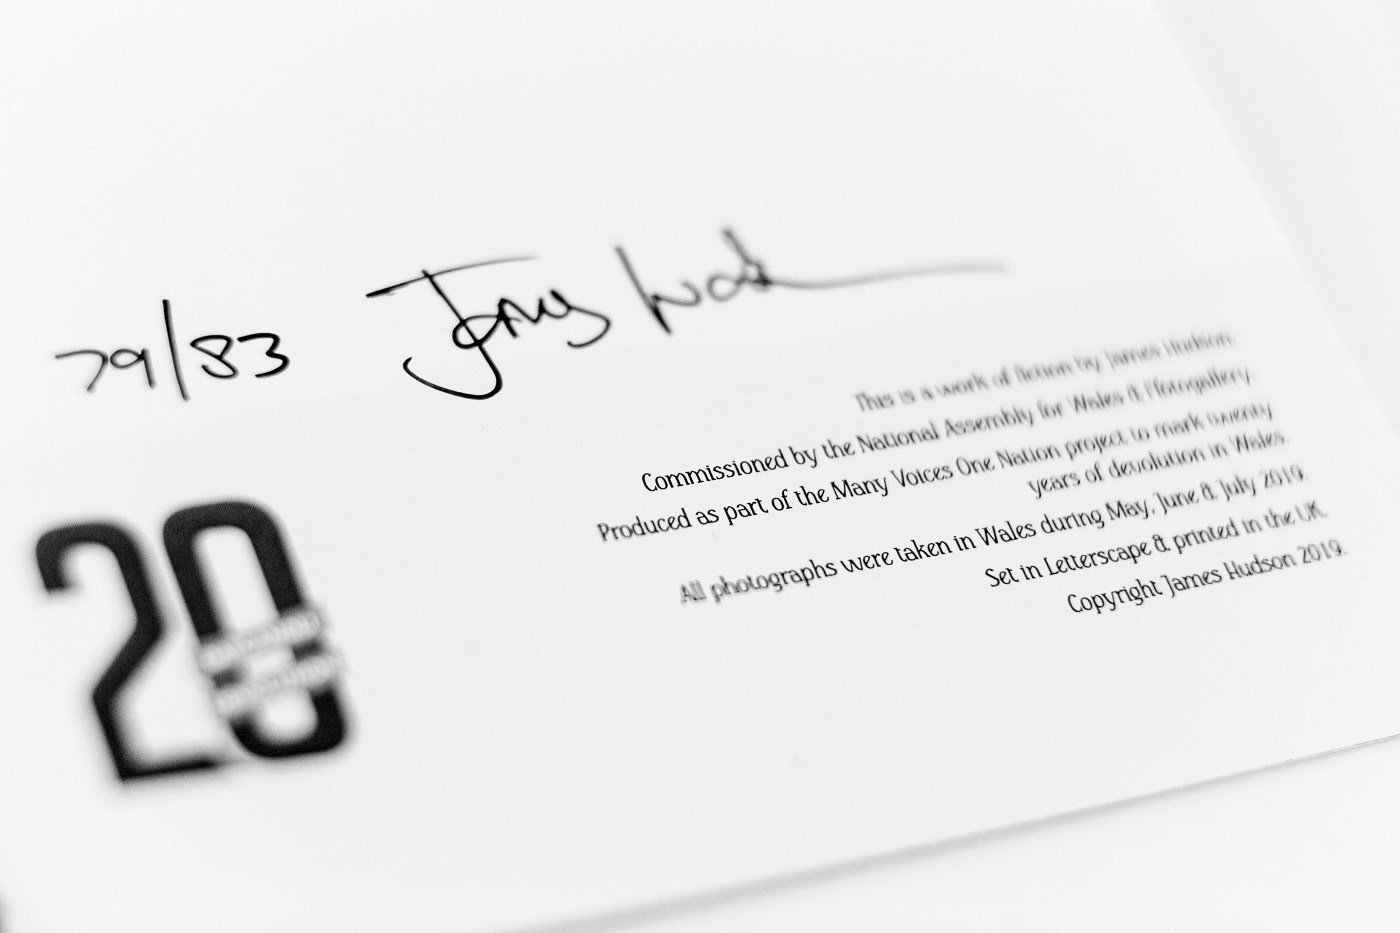 79/83
This is a work of fiction by James Hudson.
Commissioned by the National Assembly for Wales & Ffotogallery
Produced as part of the Many Voices One Nation project to mark twenty
years of devolution in Wales.
All photographs were taken in Wales during May, June & July 2019.
Set in Letterscape & printed in the UK.
Copyright James Hudson 2019.
20